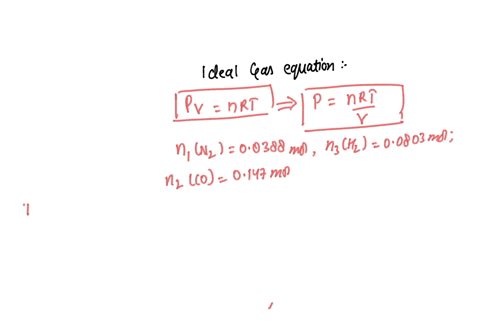 Ideal Gas equation :-
PV = nRT ⇒ P = nRT/V
n₁(N₂) = 0.0388 mol, n₃(H₂) = 0.0803 mol;
n₂(CO) = 0.147 mol